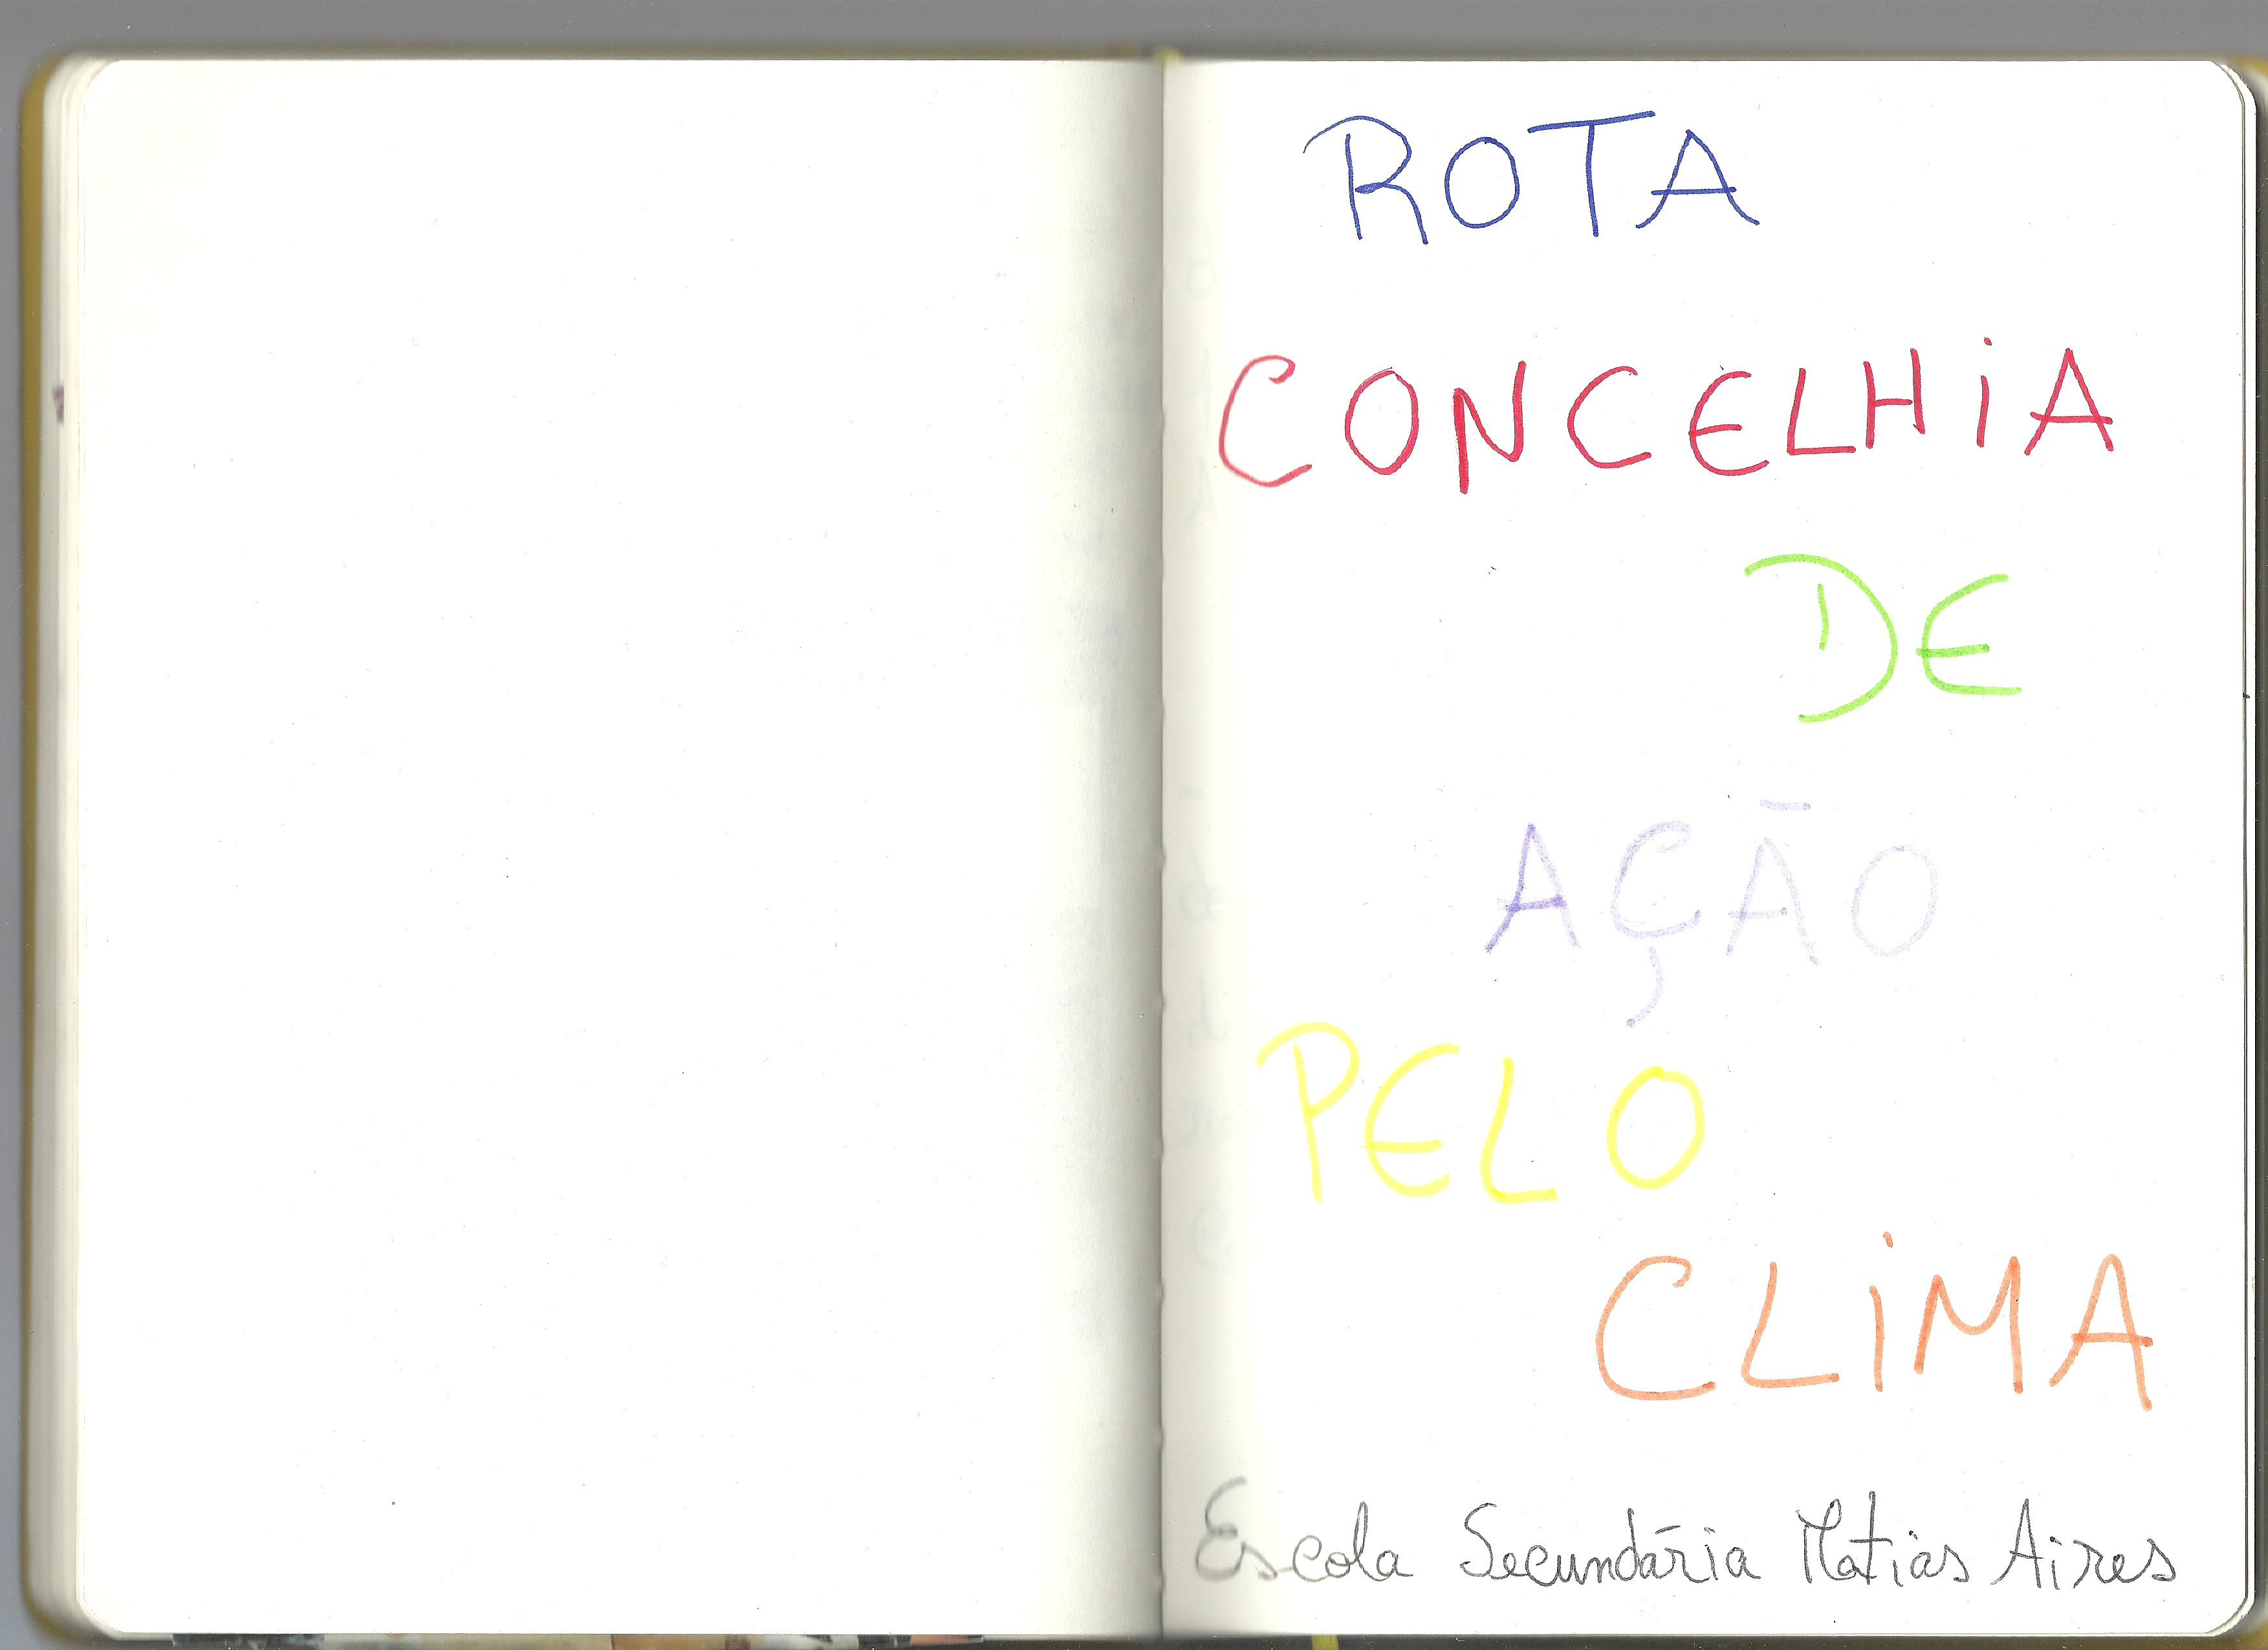 ROTA
CONCELHIA
DE
AÇÃO
PELO
CLIMA
Escola Secundária Matias Aires